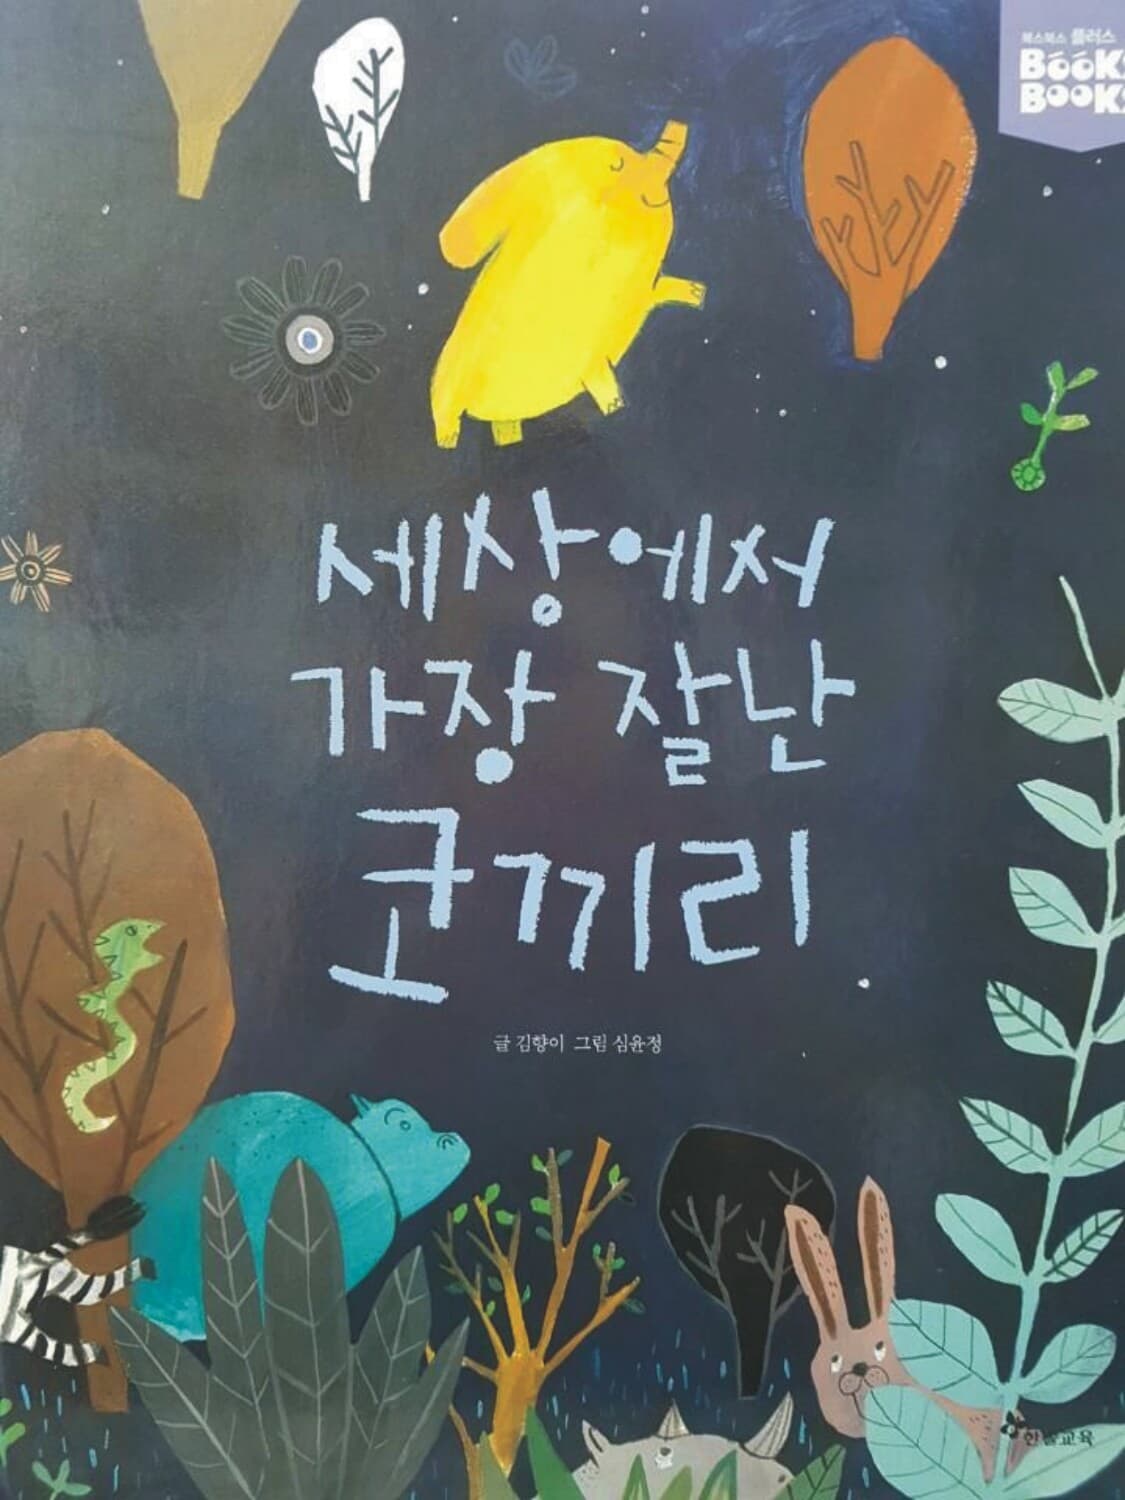 북스북스 플러스
BOOKS
BOOKS
세상에서
가장 잘난
코끼리
글 김향이 그림 심윤정
한솔교육